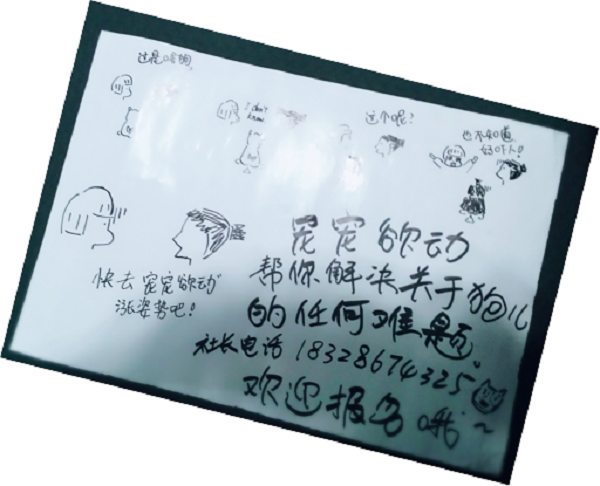 这是啥狗
I don't
know
这个呢?
也不知道
好吓人!
快去宠宠欲动
涨姿势吧!
宠宠欲动
帮你解决关于狗儿
的任何难题。
社长电话 18328674325
欢迎报名哦~